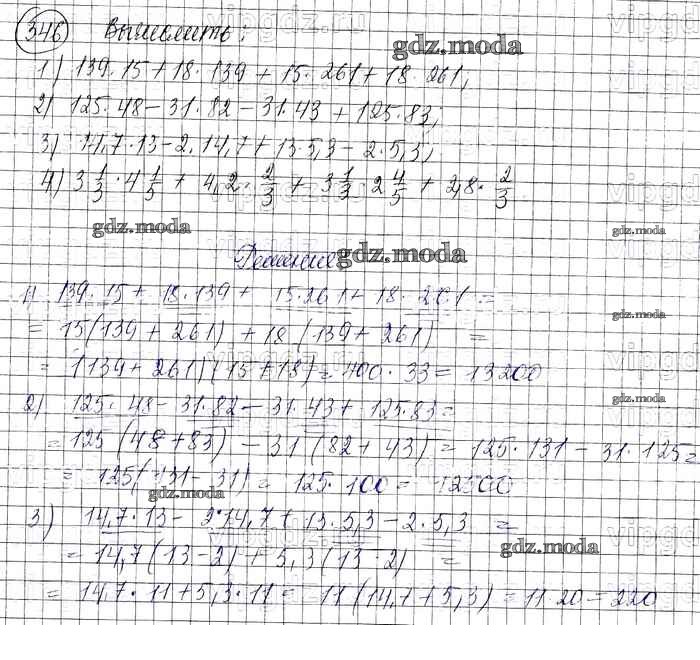 346 Вычислить:
1) 139·15 + 18·139 + 15·261 + 18·261;
2) 125·48 – 31·82 – 31·43 + 125·83;
3) 14,7·13 – 2·14,7 + 13·5,3 – 2·5,3;
4) 3 1/3 · 4 1/5 + 4,2 · 2/3 + 3 1/3 · 2 4/5 + 2,8 · 2/3
gdz.moda
Решение
1) 139·15 + 18·139 + 15·261 + 18·261 =
= 15(139 + 261) + 18(139 + 261) =
= (139 + 261)(15 + 18) = 400·33 = 13200
2) 125·48 – 31·82 – 31·43 + 125·83 =
= 125(48 + 83) – 31(82 + 43) = 125·131 – 31·125 =
= 125(131 – 31) = 125·100 = 12500
3) 14,7·13 – 2·14,7 + 13·5,3 – 2·5,3 =
= 14,7(13 – 2) + 5,3(13 – 2) =
= 14,7·11 + 5,3·11 = 11(14,7 + 5,3) = 11·20 = 220